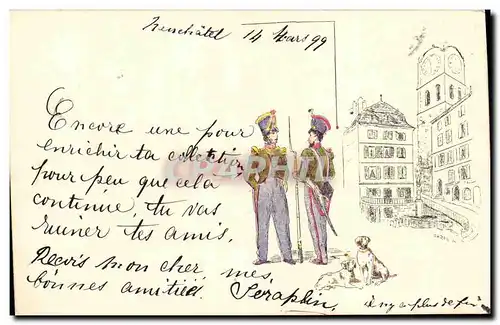 Neuchâtel 14 Mars 99
Encore une pour
enrichir ta collection
pour peu que cela
continue, tu vas
ruiner tes amis.
Reçois mon cher, mes
bonnes amitiés. Séraphin,
il n'y a plus de
CARPHI